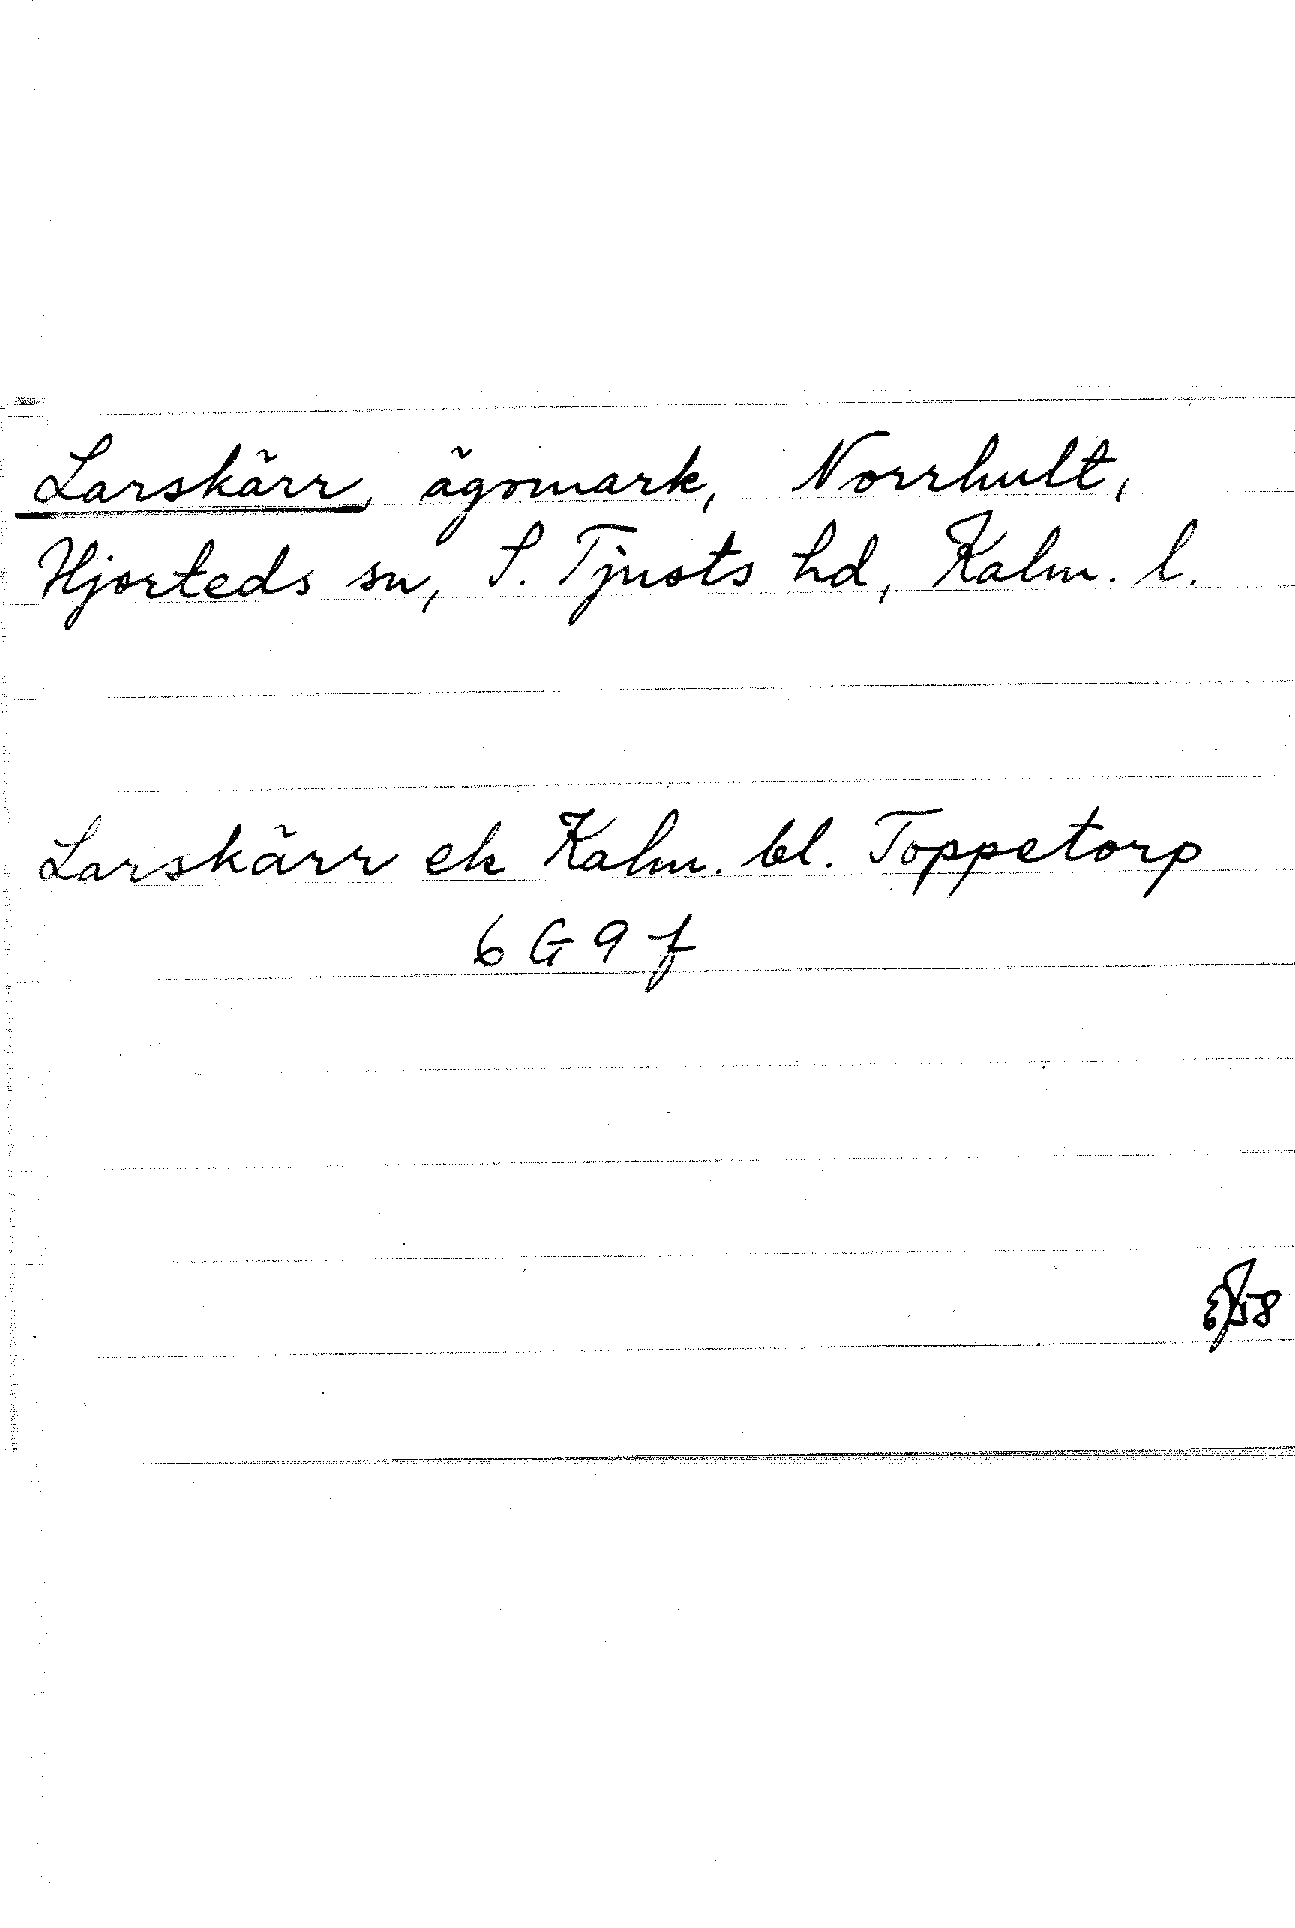 Larskärr, ägomark, Norrhult,
Hjorteds sn, S. Tjusts hd, Kalm. l.
Larskärr ek Kalm. bl. Toppetorp
6 G 9 f